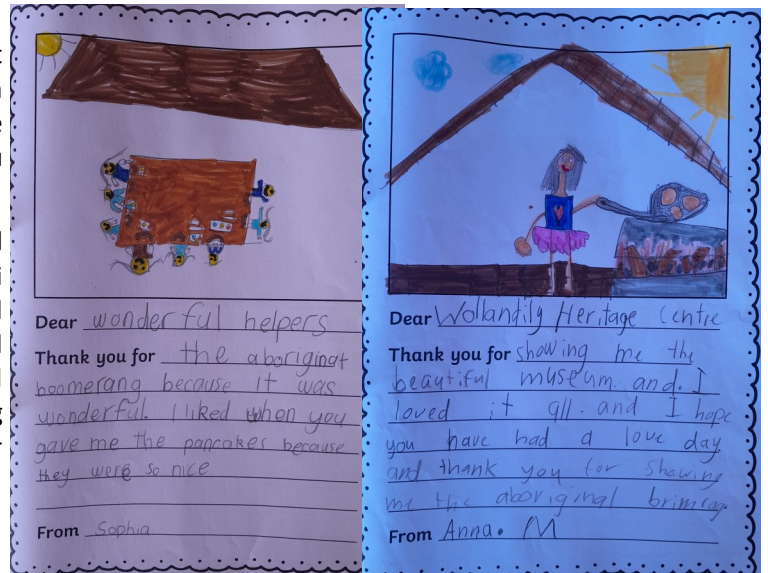 Dear wonderful helpers
Thank you for the aboriginat
boomerang because it was
wonderful. I liked when you
gave me the pancakes because
they were so nice
From Sophia
Dear Wollandily Heritage Centre
Thank you for showing me the
beautiful museum. and. I
loved it all. and I hope
you have had a love day
and thank you for showing
me the aboriginal brimrag
From Anna. M